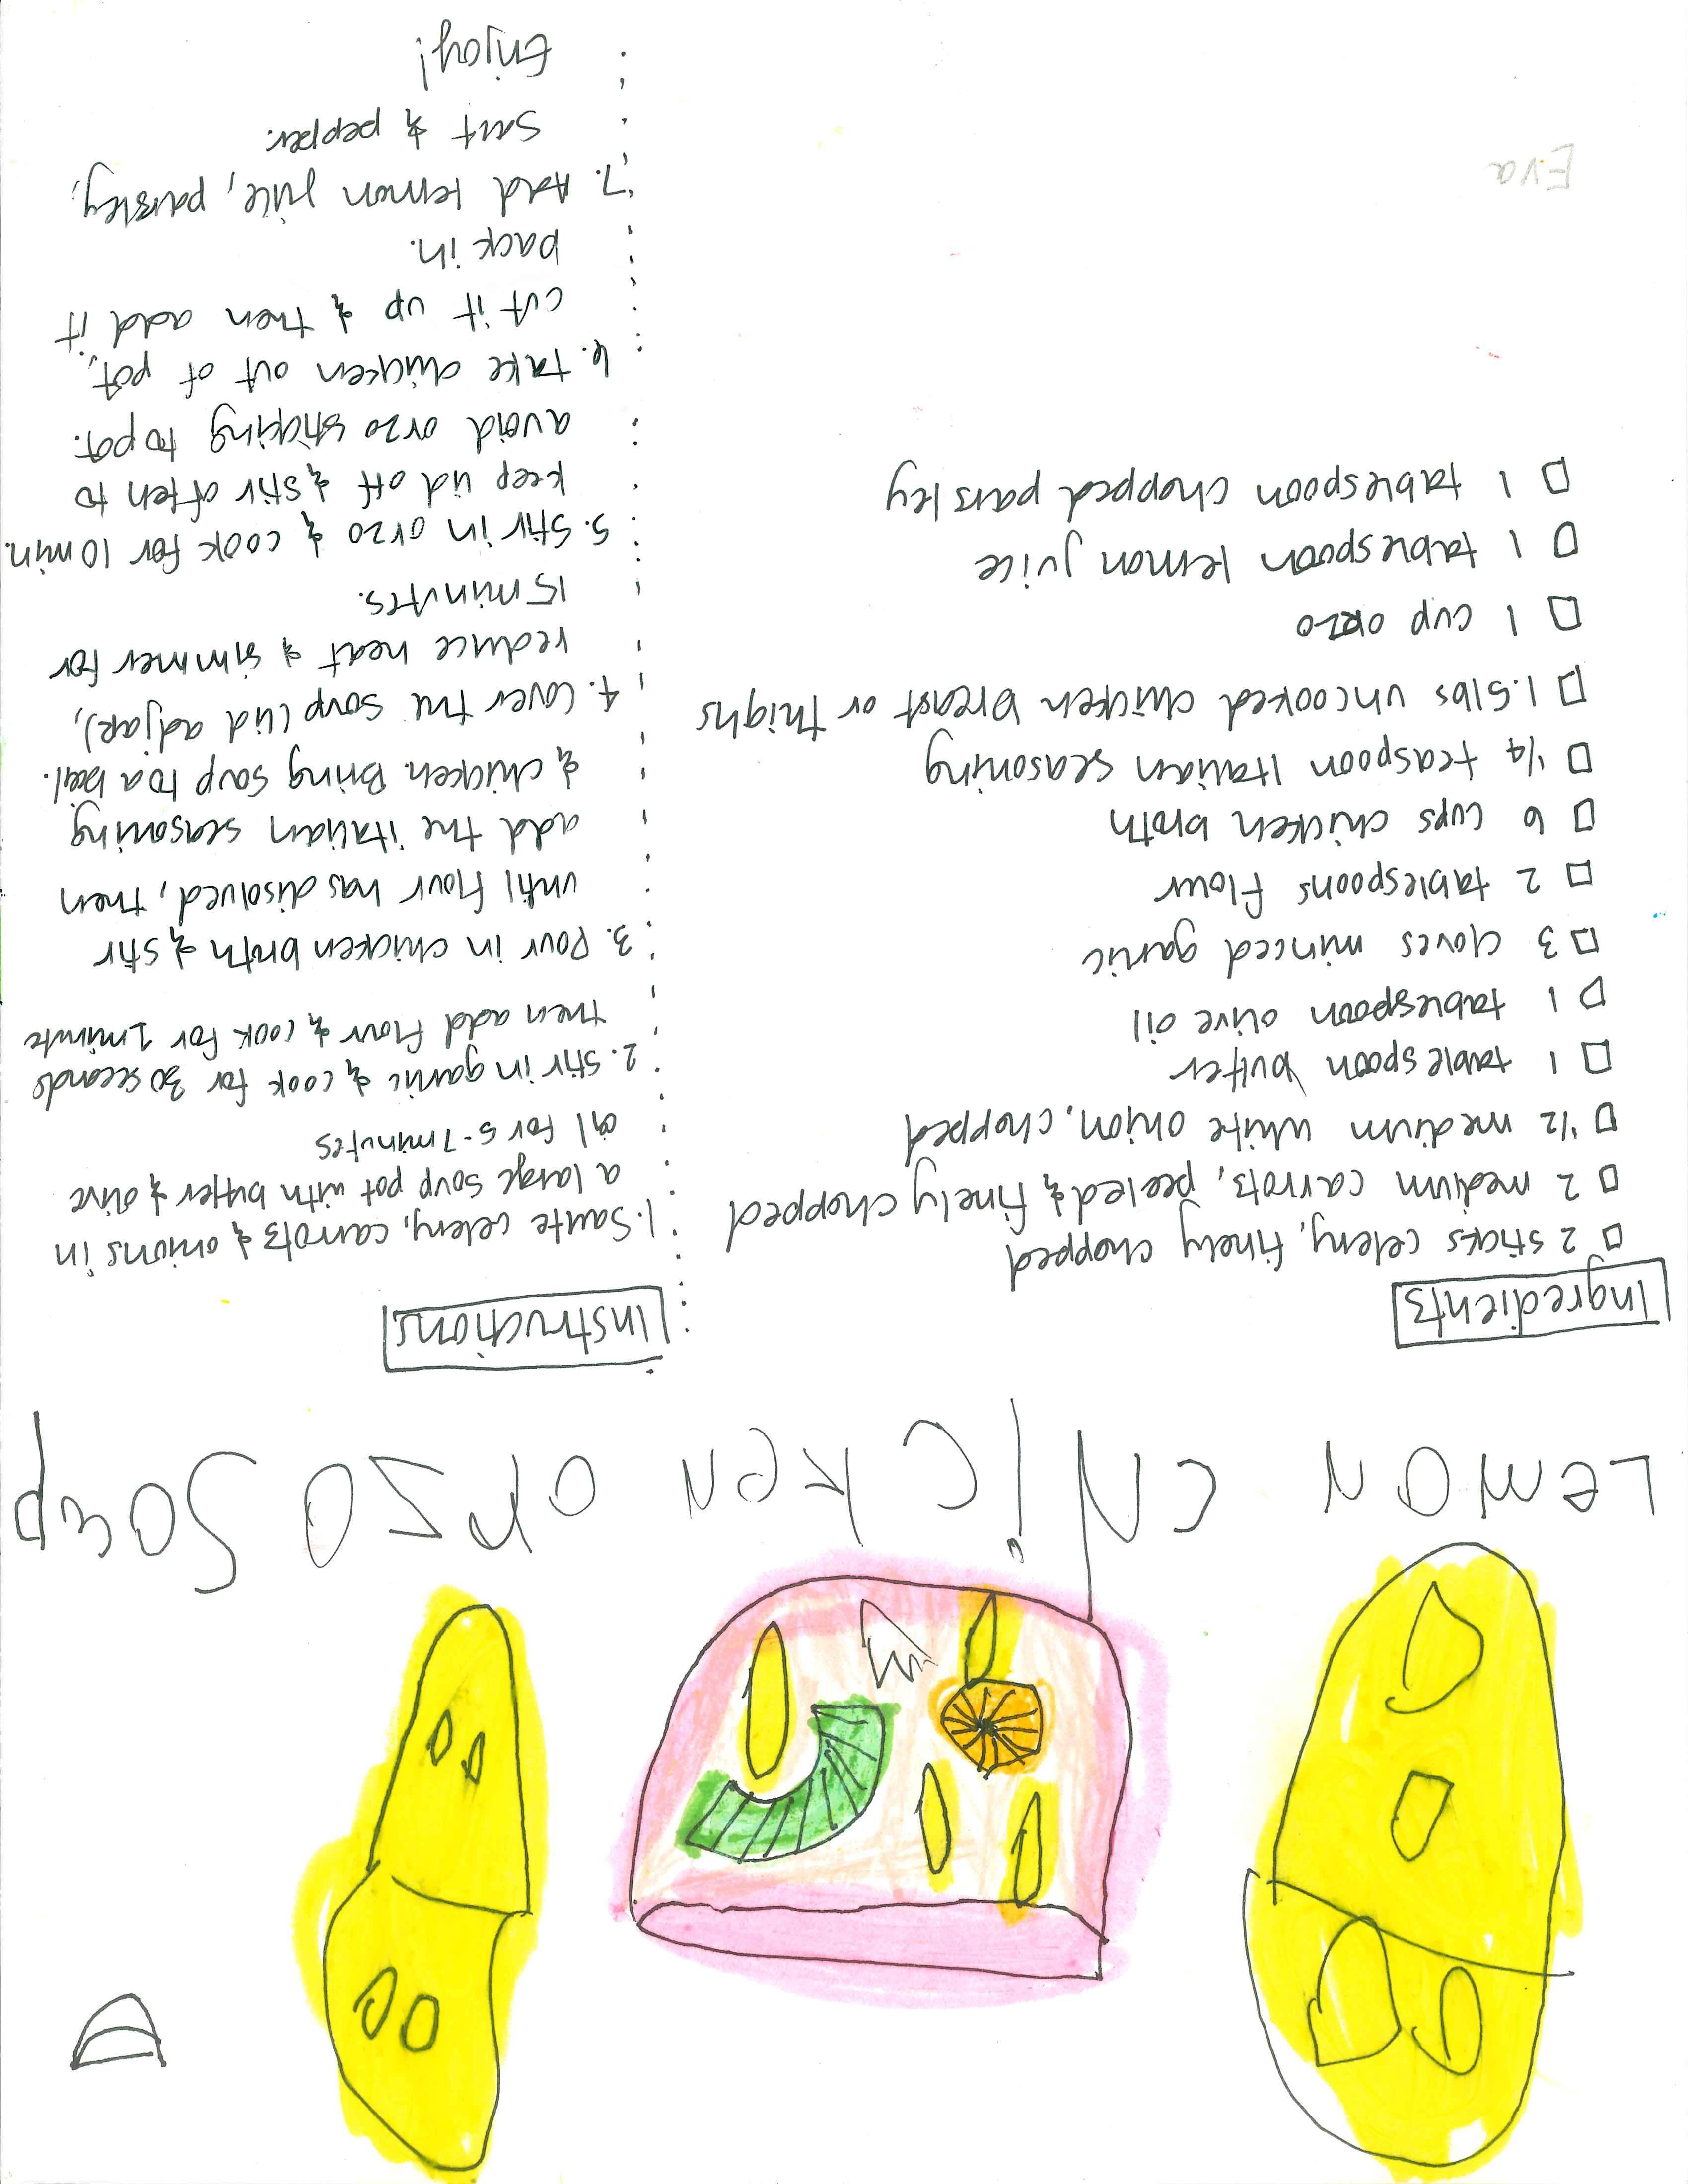 LEMON CHiCKEN ORZO SOup
Ingredients
□ 2 sticks celery, finely chopped
□ 2 medium carrots, peeled & finely chopped
□ 1/2 medium white onion, chopped
□ 1 tablespoon butter
□ 1 tablespoon olive oil
□ 3 cloves minced garlic
□ 2 tablespoons flour
□ 6 cups chicken broth
□ 1/4 teaspoon Italian seasoning
□ 1.5 lbs uncooked chicken breast or thighs
□ 1 cup orzo
□ 1 tablespoon lemon juice
□ 1 tablespoon chopped parsley
Eva
Instructions
1. Saute celery, carrots & onions in
a large soup pot with butter & olive
oil for 5-7 minutes
2. Stir in garlic & cook for 30 seconds
then add flour & cook for 1 minute
3. Pour in chicken broth & stir
until flour has disolved, then
add the italian seasoning
& chicken. Bring soup to a boil.
4. Cover the soup (lid adjar),
reduce heat & simmer for
15 minutes.
5. Stir in orzo & cook for 10 min.
keep lid off & stir often to
avoid orzo sticking to pot.
6. take chicken out of pot,
cut it up & then add it
back in.
7. Add lemon juice, parsley,
salt & pepper.
Enjoy!